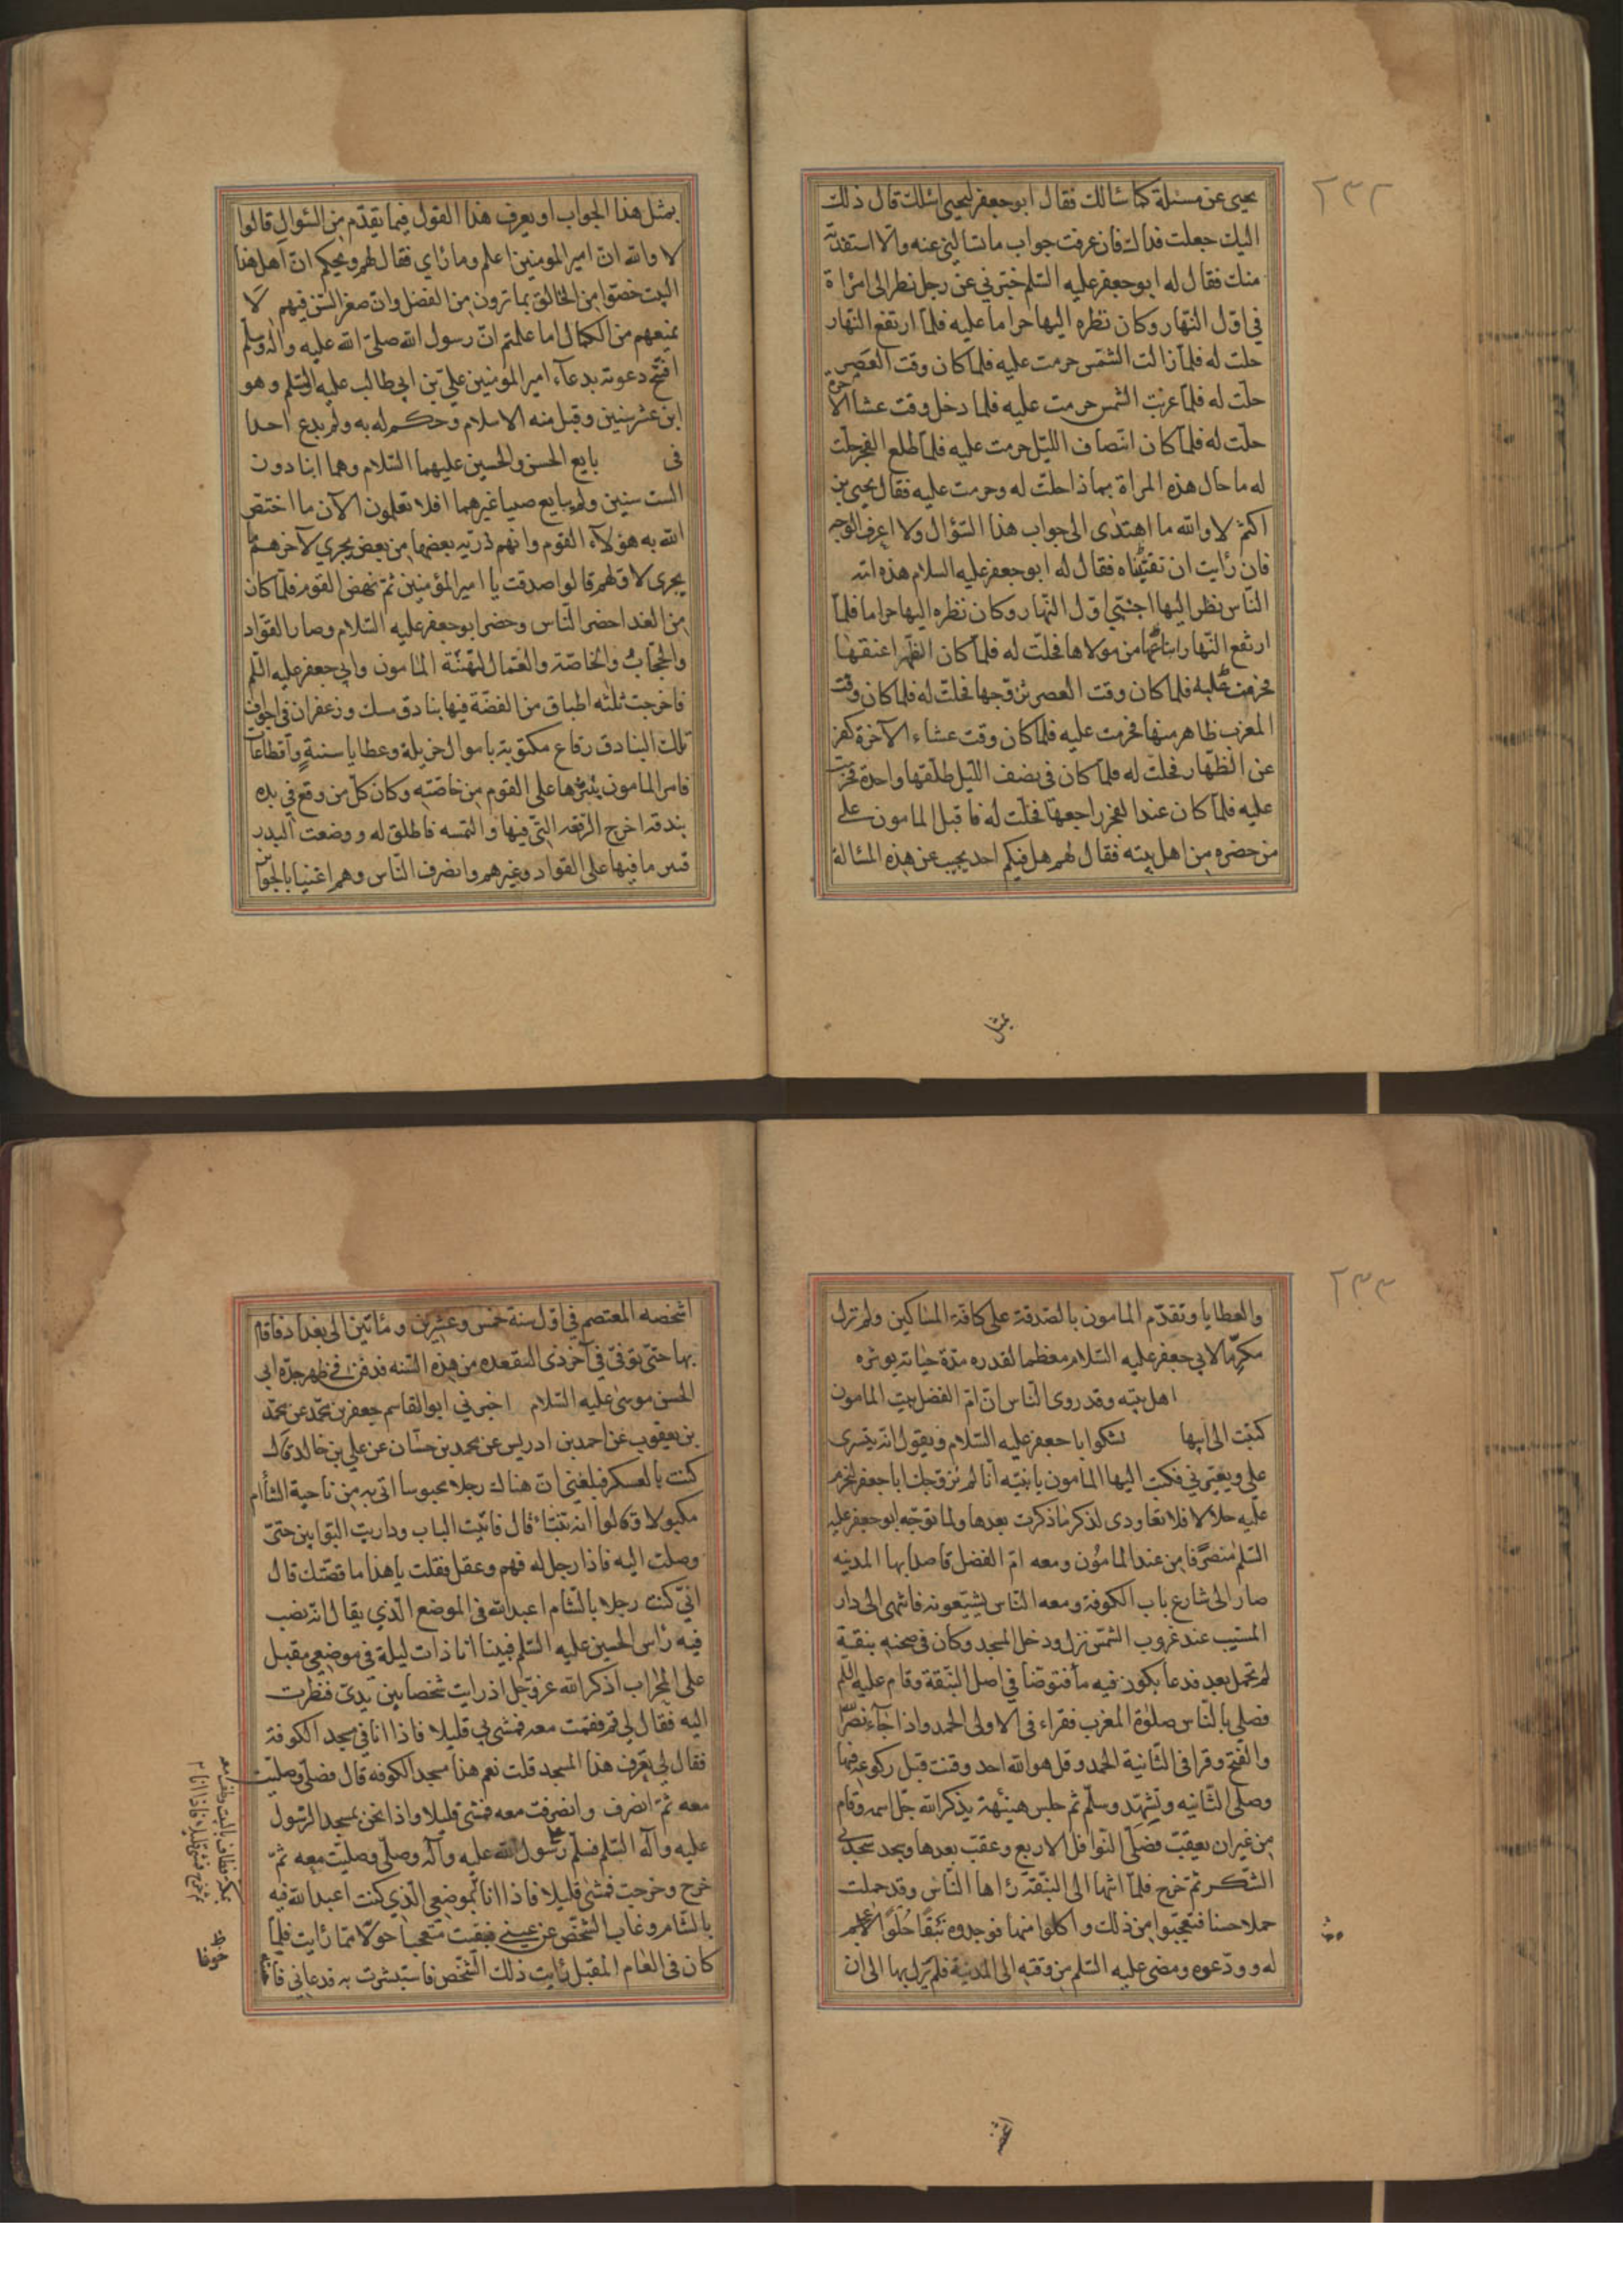 ٢٣٢
يحيى عن مسئلة كما سالك فقال ابو جعفر ليحيى اسئلك قال ذلك
اليك جعلت فداك فان عرفت جواب ما تسالني عنه والا استفدته
منك فقال له ابو جعفر عليه السلم خبرني عن رجل نظر الى امراة
في اول النهار وكان نظره اليها حراما عليه فلما ارتفع النهار
حلت له فلما زالت الشمس حرمت عليه فلما كان وقت العصر
حلت له فلما غربت الشمس حرمت عليه فلما دخل وقت عشا الآخرة
حلت له فلما كان انتصاف الليل حرمت عليه فلما طلع الفجر حلت
له ما حال هذه المراة بماذا حلت له وحرمت عليه فقال يحيى بن
اكثم لا والله ما اهتدى الى جواب هذا السؤال ولا اعرف الوجه
فان رايت ان تفيدناه فقال له ابو جعفر عليه السلام هذه امة
الناس نظر اليها اجنبي اول النهار وكان نظره اليها حراما فلما
ارتفع النهار ابتاعها من مولاها فحلت له فلما كان الظهر اعتقها
فحرمت عليه فلما كان وقت العصر تزوجها فحلت له فلما كان وقت
المغرب ظاهر منها فحرمت عليه فلما كان وقت عشاء الآخرة كفر
عن الظهار فحلت له فلما كان في نصف الليل طلقها واحدة فحرمت
عليه فلما كان عند الفجر راجعها فحلت له فاقبل المامون على
من حضره من اهل بيته فقال لهم هل فيكم احد يجيب عن هذه المسالة
بمثل
بمثل هذا الجواب او يعرف هذا القول فيما تقدم من السئوال قالوا
لا والله ان امير المومنين اعلم وما راى فقال لهم ويحكم ان اهل هذا
البيت خصوا من الخالق بما ترون من الفضل وان صغر السن فيهم لا
يمنعهم من الكمال اما علمتم ان رسول الله صلى الله عليه واله وسلم
افتتح دعوته بدعاء امير المؤمنين علي بن ابي طالب عليه السلم وهو
ابن عشر سنين وقبل منه الاسلام وحكم له به ولم يدع احدا
في بايع الحسن والحسين عليهما السلام وهما ابنا دون
الست سنين ولم يبايع صبيا غيرهما افلا تعلمون الآن ما اختص
الله به هؤلاء القوم وانهم ذرية بعضها من بعض يجري لآخرهم ما
يجرى لاولهم قالوا صدقت يا امير المؤمنين ثم نهض القوم فلما كان
من الغد احضر الناس وحضر ابو جعفر عليه السلام وصار القواد
والحجاب والخاصة والعمال لتهنئة المامون وابي جعفر عليه السلم
فاخرجت ثلثه اطباق من الفضة فيها بنادق مسك وزعفران في اجواف
تلك البنادق رقاع مكتوبة باموال جزيلة وعطايا سنية واقطاعات
فامر المامون بنثرها على القوم من خاصته وكان كل من وقع في يده
بندقة اخرج الرقعه التي فيها والتمسه فاطلق له ووضعت البدر
فنثر ما فيها على القواد وغيرهم وانصرف الناس وهم اغنيا بالجوائز
٢٣٣
والعطايا وتقدم المامون بالصدقة على كافة المساكين ولم تزل
مكرما لابي جعفر عليه السلام معظما لقدره مدة حياته يوثره
اهل بيته وقد روى الناس ان ام الفضل بنت المامون
كتبت الى ابيها تشكوا ابا جعفر عليه السلام ويقول انه يتسرى
علي ويغيرني فكتب اليها المامون يا بنيه انا لم نزوجك ابا جعفر لنحرم
عليه حلالا فلا تعاودى لذكر ما ذكرت بعدها ولما توجه ابو جعفر عليه
السلم منصرفا من عند المامون ومعه ام الفضل قاصدا بها المدينه
صار الى شارع باب الكوفة ومعه الناس يشيعونه فانتهى الى دار
المسيب عند غروب الشمس نزل ودخل المسجد وكان في صحنه نبقة
لم تحمل بعد فدعا بكوز فيه ما فتوضا في اصل النبقة وقام عليه السلم
فصلى بالناس صلوة المغرب فقراء في الاولى الحمد واذا جاء نصر الله
والفتح وقرا في الثانية الحمد وقل هو الله احد وقنت قبل ركوعه فيها
وصلى الثانيه وتشهد وسلم ثم جلس هنيئهة يذكر الله جل اسمه وقام
من غير ان يعقب فصلى النوافل الاربع وعقب بعدها وسجد سجدتي
الشكر ثم خرج فلما انتها الى النبقة راها الناس وقد حملت
حملا حسنا فتعجبوا من ذلك واكلوا منها فوجدوه نبقا حلوا لا عجم
له وودعوه ومضى عليه السلم من وقته الى المدينة فلم يزل بها الى ان
اشخصه
اشخصه المعتصم في اول سنة خمس وعشرين ومأتين الى بغداد فاقام
بها حتى توفى في آخر ذى القعده من هذه السنه فدفن في ظهر جده ابي
الحسن موسى عليه السلام اخبرني ابو القاسم جعفر بن محمد عن محمد
بن يعقوب عن احمد بن ادريس عن محمد بن حسان عن علي بن خالد قال
كنت بالعسكر فبلغني ان هناك رجلا محبوسا اتى به من ناحية الشأم
مكبولا وقالوا انه تنبئا قال فاتيت الباب وداريت البوابين حتى
وصلت اليه فاذا رجل له فهم وعقل فقلت يا هذا ما قصتك قال
اني كنت رجلا بالشام اعبد الله في الموضع الذي يقال انه نصب
فيه راس الحسين عليه السلم فبينا انا ذات ليلة في موضعي مقبل
على المحراب اذكر الله عز وجل اذ رايت شخصا بين يدى فنظرت
اليه فقال لي قم فقمت معه فمشى بي قليلا فاذا انا في مسجد الكوفة
فقال لي يعرف هذا المسجد قلت نعم هذا مسجد الكوفه قال فصلى وصليت
معه ثم انصرف وانصرفت معه فمشى قليلا واذا نحن بمسجد الرسول
عليه وآله السلم فسلم على رسول الله عليه وآله وصلى وصليت معه ثم
خرج وخرجت فمشى قليلا فاذا انا بموضعي الذي كنت اعبد الله فيه
بالشام وغاب الشخص عن عيني فبقيت متعجبا حولا مما رايت فلما
كان في العام المقبل رايت ذلك الشخص فاستبشرت به فدعاني فاجبته